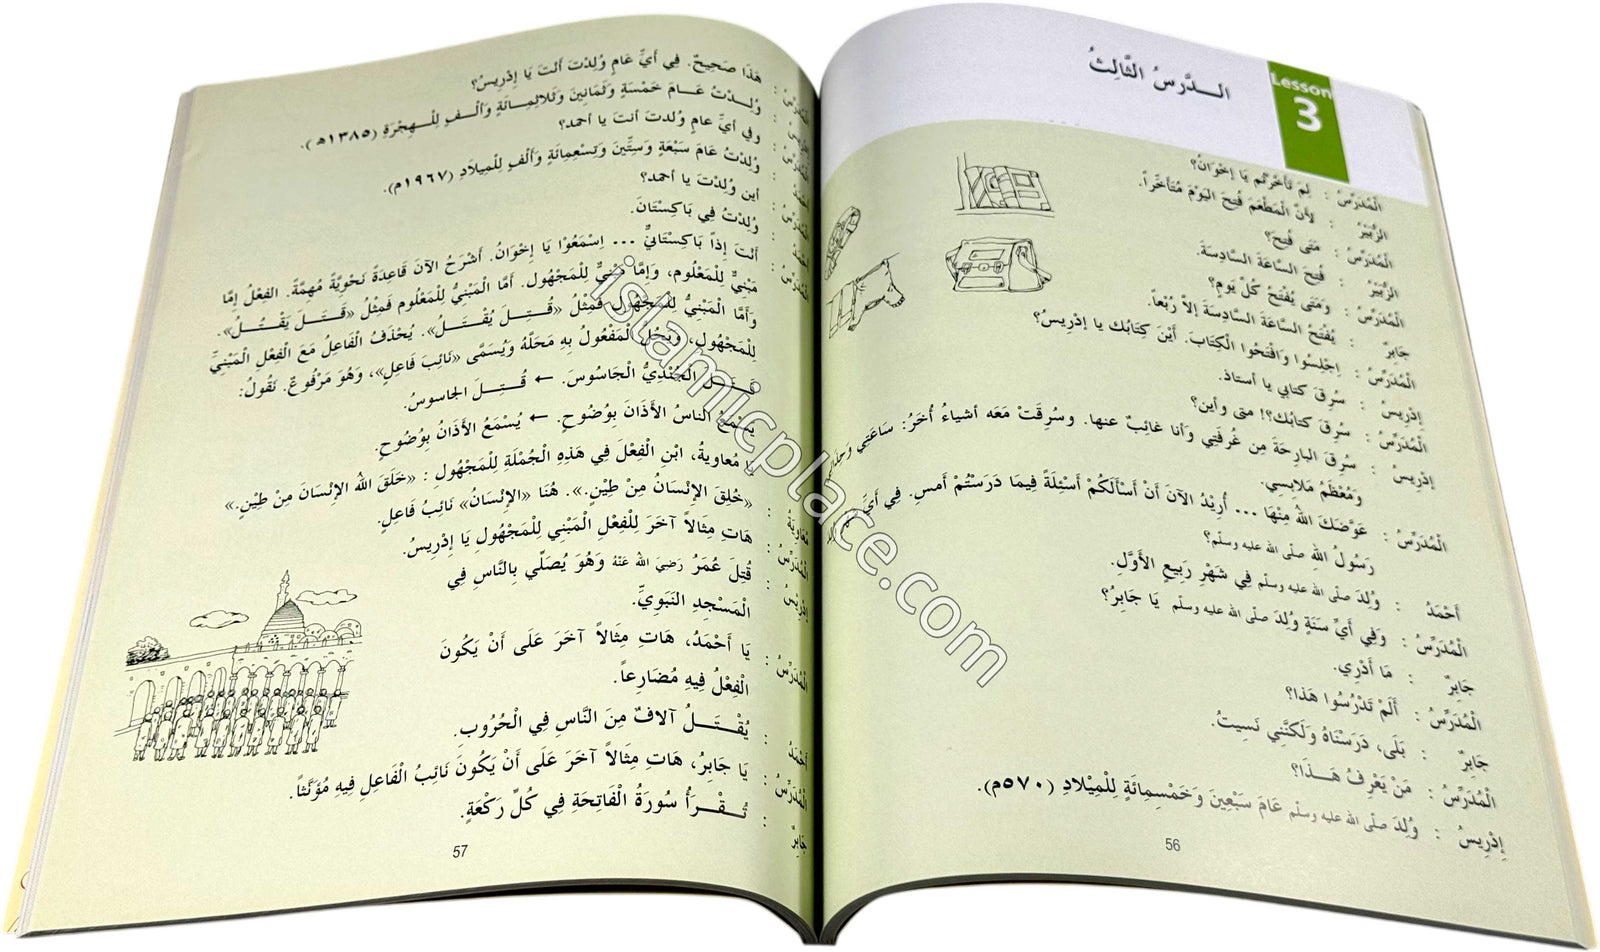 Lesson
3
الـدَّرسُ الثَّالِثُ
الْمُدَرِّسُ : لِمَ تَأَخَّرْتُم يَا إِخْوَانُ؟
الزُّبَيْرُ : لأَنَّ الْمَطْعَمَ فُتِحَ الْيَوْمَ مُتَأَخِّراً.
الْمُدَرِّسُ : مَتَى فُتِحَ؟
الزُّبَيْرُ : فُتِحَ السَّاعَةَ السَّادِسَةَ.
الْمُدَرِّسُ : وَمَتَى يُفْتَحُ كُلَّ يَومٍ؟
جَابِرٌ : يُفْتَحُ السَّاعَةَ السَّادِسَةَ إلاَّ رُبْعاً.
الْمُدَرِّسُ : اِجْلِسُوا وَافْتَحُوا الْكِتَابَ. أَيْنَ كِتَابُك يا إدْرِيسُ؟
إدْرِيسُ : سُرِقَ كتابي يا أستاذ.
الْمُدَرِّسُ : سُرِقَ كتابُك؟! متى وأين؟
إدْرِيسُ : سُرِقَ البارِحَةَ مِن غُرفَتِي وأنا غائِبٌ عنها. وسُرِقَتْ مَعَه أشياءُ أُخَرُ: سَاعَتِي
وَمُعْظَمُ مَلابِسِي.
الْمُدَرِّسُ : عَوَّضَكَ اللهُ مِنْهَا ... أُرِيْدُ الآنَ أنْ أَسْأَلَكُمْ أَسْئِلَةً فِيمَا دَرَسْتُمْ أمسِ. فِي أَيِّ
رَسُولُ اللهِ صلّى الله عليه وسلّم؟
أَحْمَدُ : وُلِدَ صلّى الله عليه وسلّم فِي شَهْرِ رَبِيعٍ الأَوَّلِ.
الْمُدَرِّسُ : وَفِي أَيِّ سَنَةٍ وُلِدَ صلّى الله عليه وسلّم يَا جَابِرُ؟
جَابِرٌ : مَا أَدْرِي.
الْمُدَرِّسُ : أَلَمْ تَدْرُسُوا هَذا؟
جَابِرٌ : بَلَى، دَرَسْنَاهُ وَلَكنَّنِي نَسِيتُ.
الْمُدَرِّسُ : مَنْ يَعْرِفُ هَـذَا؟
إدْرِيسُ : وُلِدَ صلّى الله عليه وسلّم عَامَ سَبْعِينَ وَخَمْسِمِائَةٍ لِلْمِيْلادِ (٥٧٠م).
56
الْمُدَرِّسُ : هَذَا صَحِيحٌ. فِي أَيِّ عَامٍ وُلِدْتَ أَنْتَ يَا إِدْرِيسُ؟
إدْرِيسُ : وُلِـدْتُ عَـامَ خَمْسَةٍ وَثَمَانِينَ وَثَلاثِمِائَةٍ وَأَلْـفٍ لِلْـهِجْرَةِ (١٣٨٥هـ).
الْمُدَرِّسُ : وفِي أَيِّ عامٍ وُلدتَ أنتَ يا أحمد؟
أَحْمَدُ : وُلِدْتُ عَامَ سَبْعَةٍ وَسِتِّينَ وَتِسْعِمِائَةٍ وَأَلْفٍ لِلْمِيلَادِ (١٩٦٧م).
الْمُدَرِّسُ : أين وُلِدْتَ يا أحمد؟
أَحْمَدُ : وُلِدْتُ فِي بَاكِسْتَانَ.
الْمُدَرِّسُ : أَنْتَ إِذاً بَاكِسْتَانِيٌّ ... اِسْمَعُوْا يَا إِخْوَانُ. أَشْرَحُ الآنَ قَاعِدَةً نَحْوِيَّةً مُهِمَّةً. الفِعْلُ إِمَّا
مَبْنِيٌّ لِلْمَعْلُومِ، وَإِمَّا مَبْنِيٌّ لِلْمَجْهُولِ. أَمَّا الْمَبْنِيُّ لِلْمَعْلُومِ فَمِثْلُ «قَـتَـلَ يَقْـتُـلُ».
وَأَمَّا الْمَبْنِيُّ لِلْمَجْهُولِ فَمِثْلُ «قُـتِـلَ يُقْـتَـلُ». يُحْذَفُ الْفَاعِلُ مَعَ الْفِعْلِ الْمَبْنِيِّ
لِلْمَجْهُولِ، وَيَحُلُّ الْمَفْعُولُ بِهِ مَحَلَّهُ وَيُسَمَّى «نَائِبَ فَاعِلٍ»، وَهُوَ مَرْفُوعٌ. نَقُولُ:
قَـتَـلَ الْجُنْدِيُّ الْجَاسُوسَ. ← قُـتِـلَ الجاسوسُ.
يَسْمَعُ الناسُ الأَذَانَ بِوُضُوحٍ. ← يُسْمَعُ الأَذَانُ بِوُضُوحٍ.
يَا مُعاوِيةُ، ابْنِ الْفِعْلَ فِي هَذِهِ الْجُمْلَةِ لِلْمَجْهُولِ : «خَلَقَ اللهُ الإِنْسَانَ مِنْ طِيْنٍ.»
مُعَاوِيَةُ : «خُلِقَ الإِنْسَانُ مِنْ طِيْنٍ.». هُنَا «الإِنْسَانُ» نَائِبُ فَاعِلٍ.
الْمُدَرِّسُ : هَاتِ مِثَالاً آخَرَ لِلْفِعْلِ الْمَبْنِي لِلْمَجْهُولِ يَا إِدْرِيسُ.
إدْرِيسُ : قُتِلَ عُمَرُ رَضِيَ اللهُ عَنْهُ وَهُوَ يُصَلِّي بِالنَّاسِ فِي
الْمَسْجِدِ النَبَوِيِّ.
الْمُدَرِّسُ : يَا أَحْمَدُ، هَاتِ مِثَالاً آخَرَ عَلَى أَنْ يَكُونَ
الْفِعْلُ فِيهِ مُضَارِعاً.
أَحْمَدُ : يُقْـتَـلُ آلافٌ مِنَ النَّاسِ فِي الْحُرُوبِ.
الْمُدَرِّسُ : يَا جَابِرُ، هَاتِ مِثَالاً آخَرَ عَلَى أَنْ يَكُونَ نَائِبُ الْفَاعِلِ فِيهِ مُؤَنَّثاً.
جَابِرٌ : تُـقْـرَأُ سُورَةُ الْفَاتِحَةِ فِي كُلِّ رَكْعَةٍ.
57
islamicplace.com